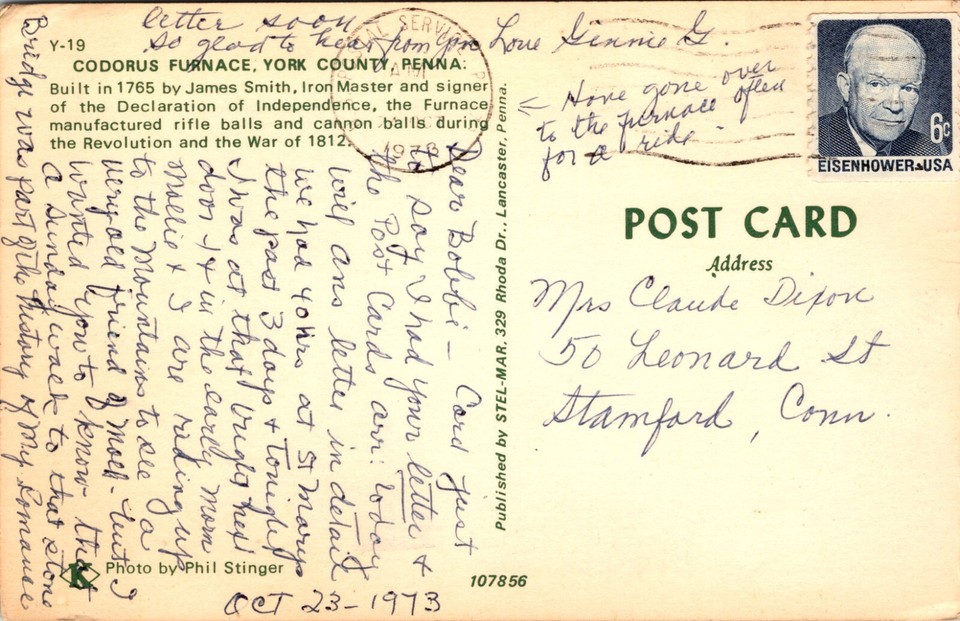 letter soon -
so glad to hear from you Love Gennie G.
Y-19
CODORUS FURNACE, YORK COUNTY, PENNA:
Built in 1765 by James Smith, Iron Master and signer
of the Declaration of Independence, the Furnace
manufactured rifle balls and cannon balls during
the Revolution and the War of 1812.
Dear Bobbi - Card just
to say I had your letter &
the Post Cards arr! today
will ans letter in detail
We had 40 Hrs at St Marys
the past 3 days & tonight
I was at that next
door & in the early morn
Mollie & I are riding up
to the Mountains to see a
very old friend of Moll- but I
wanted you to know that
a Sunday walk to that stone
Bridge was part of the history of My Romance
K
Photo by Phil Stinger
OCT 23-1973
107856
Published by STEL-MAR, 329 Rhoda Dr., Lancaster, Penna.
1973
Have gone over
to the furnace often
for a ride
6c
EISENHOWER·USA
POST CARD
Address
Mrs Claude Dixon
50 Leonard St
Stamford, Conn.